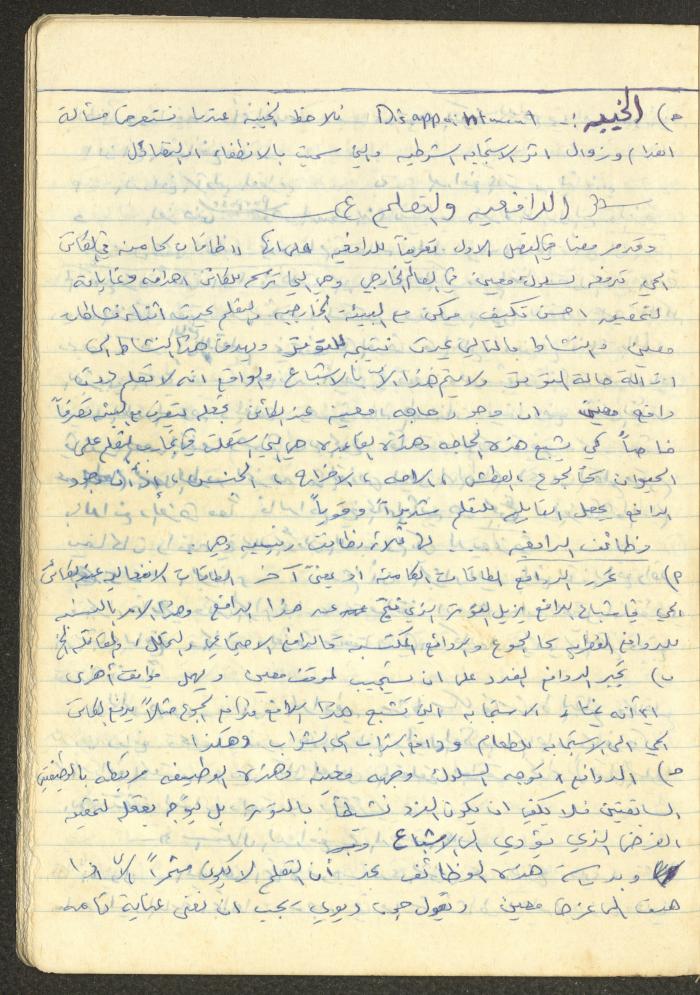 ج) الخيبه : Disappointment نلاحظ الخيبة عندما نستعرض مسألة
انعدام وزوال اثر الاستجابه الشرطيه والتي سميت بالانطفاء او التضاؤل
الدافعيه والتعلم
وقد مر معنا في الفصل الاول تعريفاً للدافعيه على انها الطاقات الكامنه في الكائن
الحي تدفعه لسلوك معين في العالم الخارجي وهي التي ترسم للكائن اهدافه وغاياته
لتحقيق احسن تكييف ممكن مع البيئة الخارجيه والتعلم يحدث اثناء نشاطات
معين والنشاط بالتالي يحدث نتيجه للتوتر ويهدف هذا النشاط الى
ازالة حالة التوتر ولا يتم هذا الا بالاشباع والواقع انه لا تعلم بدون
دافع معين ان وجود حاجه معينة عند الكائن تجعله يتصرف مع البيئه تصرفاً
خاصاً كي يشبع هذه الحاجه وهذه القاعده هي التي استغلت في تجارب التعلم على
الحيوان كالجوع ، العطش ، الراحه ، الاخراج ، الجنس ، اذاً وجود
الدافع يجعل القابليه للتعلم شديداً وقوياً
وظائف الدافعيه : لها ثلاث وظائف رئيسيه وهي :
أ) تحرر الدوافع الطاقات الكامنة او بمعنى آخر الطاقات الانفعاليه عند الكائن
الحي فاشباع الدافع يزيل التوتر الذي نتج عن هذا الدافع وهذا الامر بالنسبه
للدوافع الفطرية كالجوع والدوافع المكتسبة كالدافع الاجتماعي والتملك والمقاتله الخ
ب) تجبر الدوافع الفرد على ان يستجيب لموقف معين ويهمل مواقف أخرى
اي أنه يختار الاستجابه التي تشبع هذا الدافع فدافع الجوع مثلاً يدفع الكائن
الحي الى الاستجابه للطعام ودافع الشراب الى الشراب وهكذا
ج) الدوافع توجه السلوك وجهه معينه وهذه الوظيفه مرتبطه بالوظيفتين
السابقتين فلا يكفي ان يكون الفرد نشطاً بالتوتر بل يوجه بعقله لتحقيق
الغرض الذي يؤدي الى الاشباع
وبدراسة هذه الوظائف نجد أن التعلم لا يكون مثمراً الا اذا
هدف الى غرض معين ويقول جون ديوي يجب ان نعنى عناية تامه